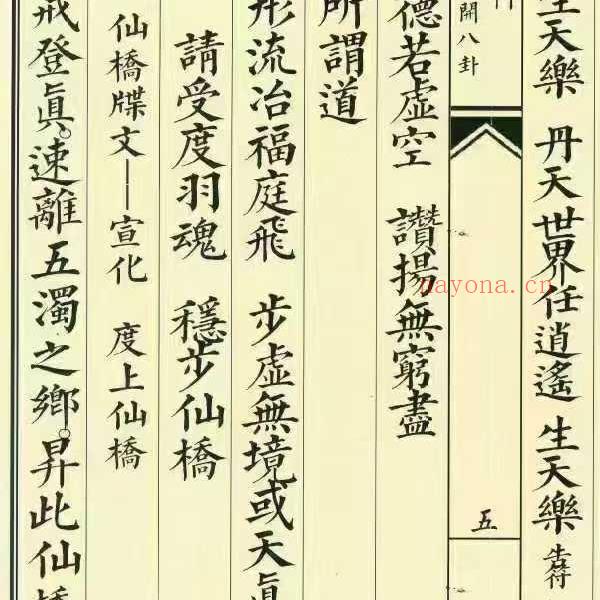 生天樂 丹天世界任逍遙 生天樂 生符
開八卦
五
德若虛空 讚揚無窮盡
所謂道
形流冶福庭飛 步虛無境或天真
請受度羽魂 穩步仙橋
仙橋牒文——宣化 度上仙橋
戒登眞。速離五濁之鄉。昇此仙橋
nayona.cn